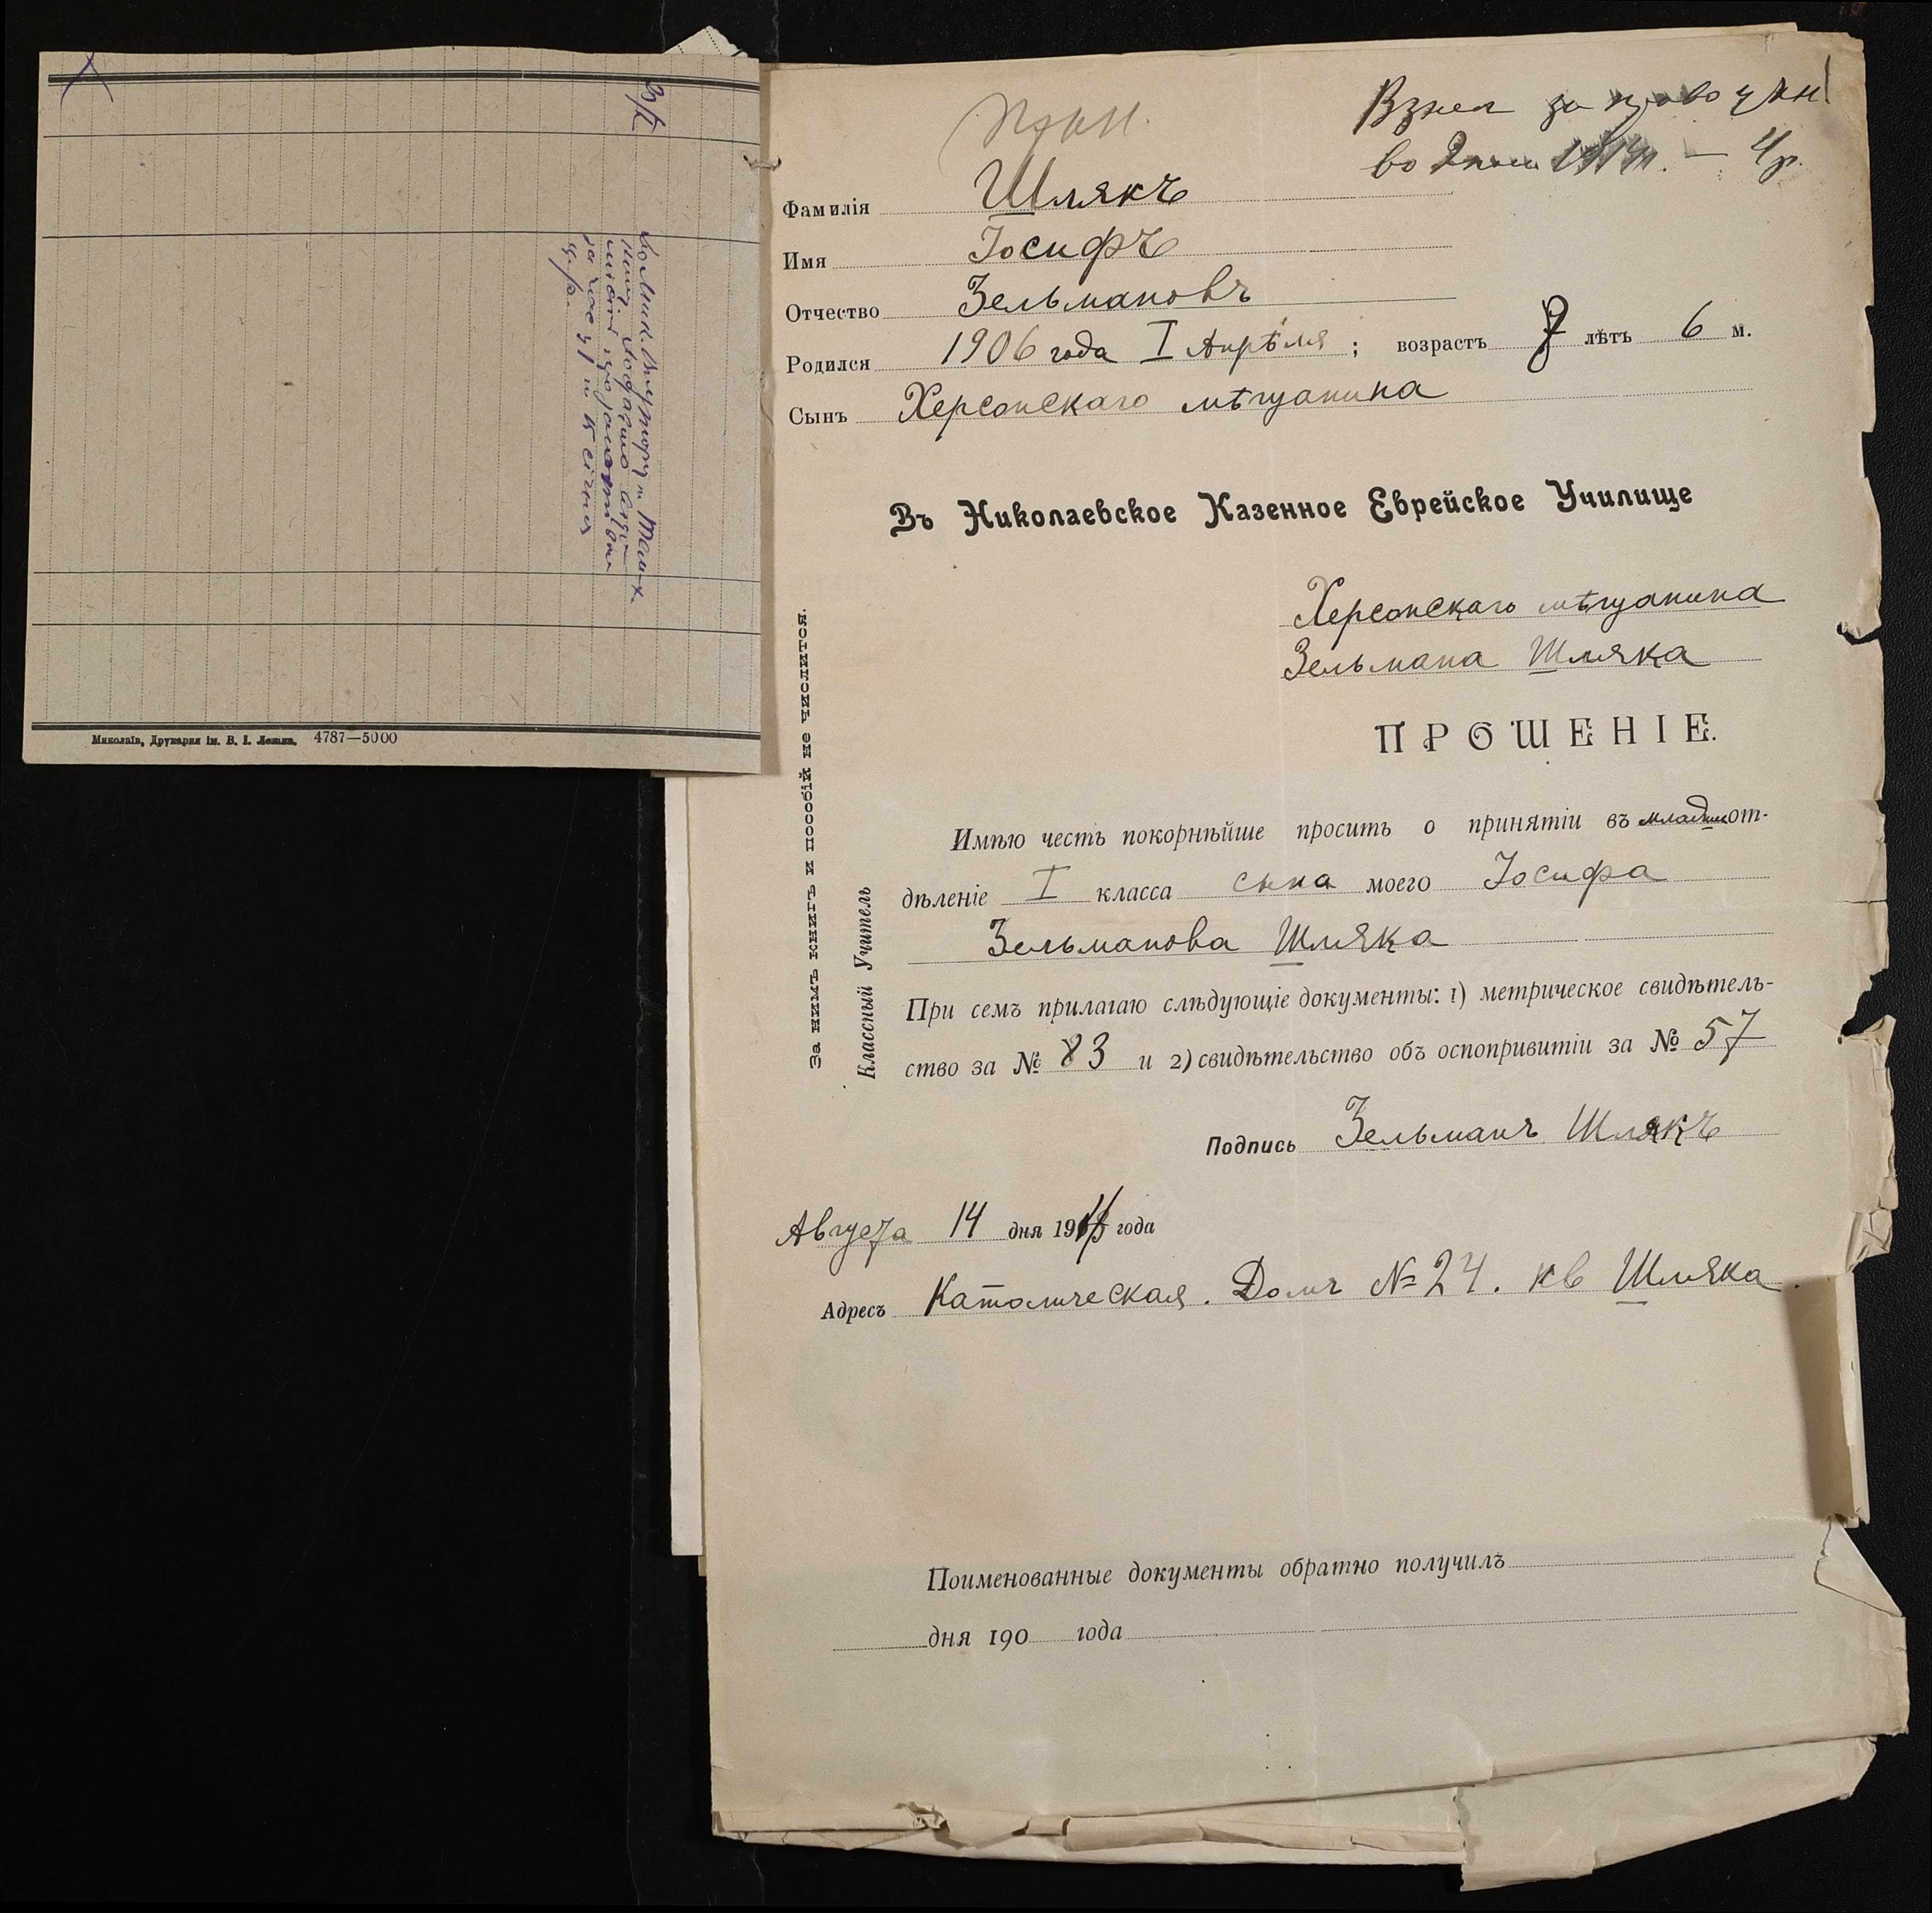 Взнос за право учен
во 2 пол 1914 г. — 4 р.
Фамилія Шлякъ
Имя Іосифъ
Отчество Зельмановъ
Родился 1906 года I Апрѣля ; возрастъ 7 лѣтъ 6 м.
Сынъ Херсонскаго мѣщанина
Въ Николаевское Казенное Еврейское Училище
Херсонскаго мѣщанина
Зельмана Шляка
ПРОШЕНІЕ.
Имѣю честь покорнѣйше просить о принятіи въ младшот-
дѣленіе I класса сына моего Іосифа
Зельманова Шляка
При семъ прилагаю слѣдующіе документы: 1) метрическое свидѣтель-
ство за № 83 и 2) свидѣтельство объ оспопривитіи за № 57
Подпись Зельманъ Шлякъ
Августа 14 дня 191 года
Адресъ Католическая. Домъ № 24. кв Шляка
Поименованные документы обратно получилъ
дня 190 года
За нимъ книгъ и пособій не числится.
Классный Учитель
Миколаїв, Друкарня ім. В. І. Леніна. 4787—5000